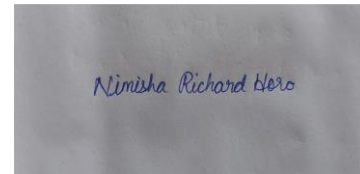 Nimisha Richard Hero